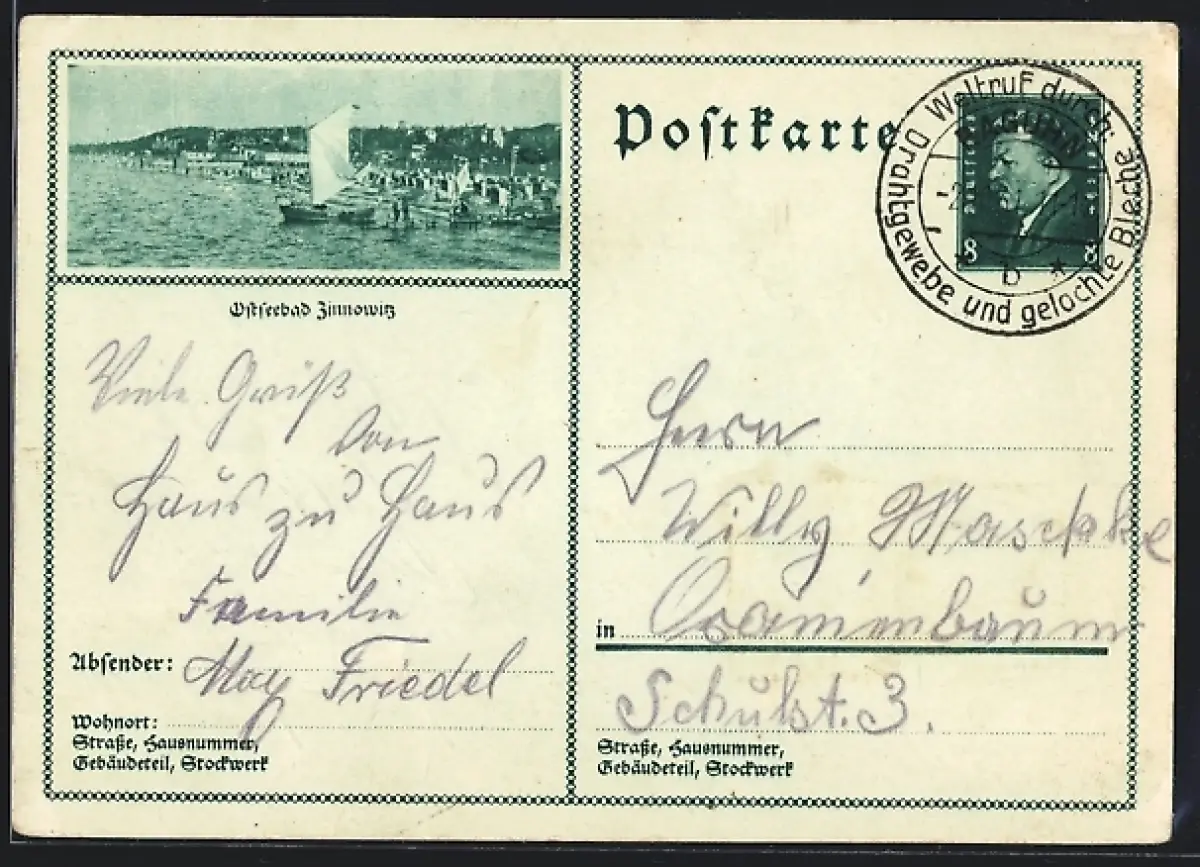 Postkarte
Weltruf durch: Drahtgewebe und gelochte Bleche
RAGUHN
b
Deutsches Reich
8 8
Ostseebad Zinnowitz
Viele Grüß
von
Haus zu Haus
Familie
Absender: Max Friedel
Wohnort:
Straße, Hausnummer,
Gebäudeteil, Stockwerk
Herrn
Willy Maschke
in Oranienbaum
Schulst. 3.
Straße, Hausnummer,
Gebäudeteil, Stockwerk